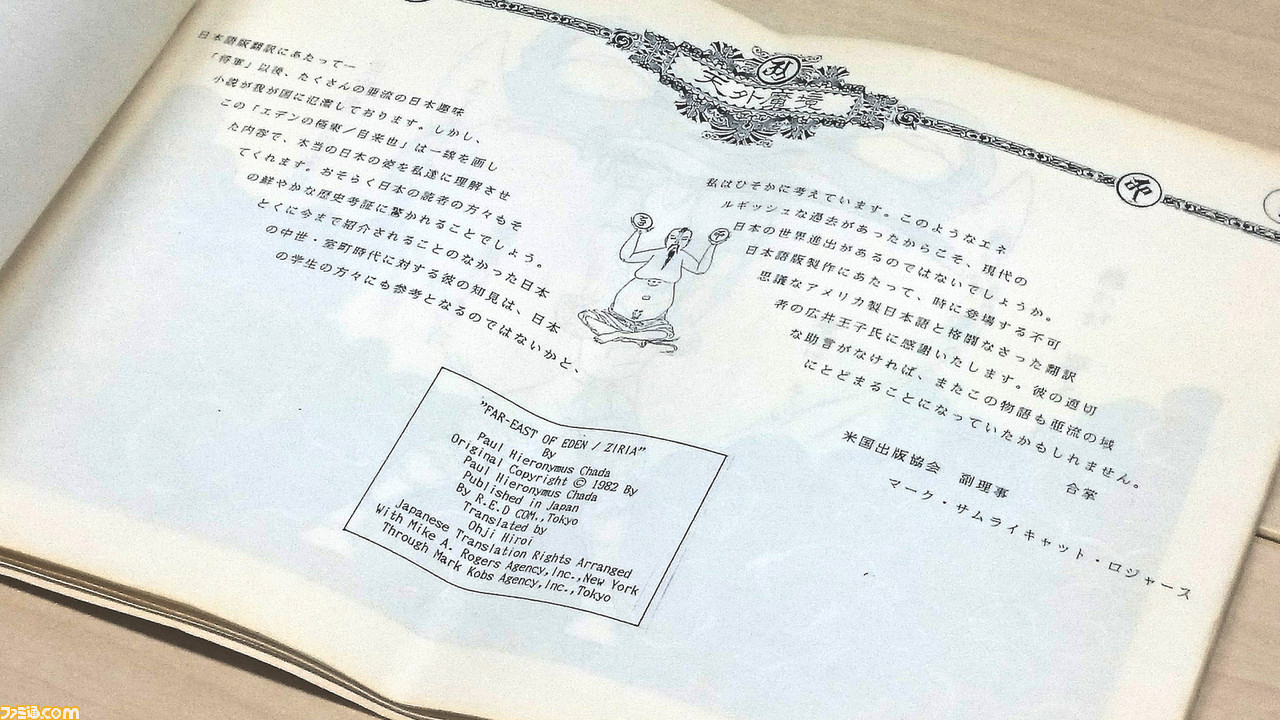 天外魔境
日本語版翻訳にあたって―
「将軍」以後、たくさんの亜流の日本趣味
小説が我が国に氾濫しております。しかし、
この「エデンの極東／自来也」は一線を画し
た内容で、本当の日本の姿を私達に理解させ
てくれます。おそらく日本の読者の方々もそ
の鮮やかな歴史考証に驚かれることでしょう。
とくに今まで紹介されることのなかった日本
の中世・室町時代に対する彼の知見は、日本
の学生の方々にも参考となるのではないかと、
私はひそかに考えています。このようなエネ
ルギッシュな過去があったからこそ、現代の
日本の世界進出があるのではないでしょうか。
日本語版製作にあたって、時に登場する不可
思議なアメリカ製日本語と格闘なさった翻訳
者の広井王子氏に感謝いたします。彼の適切
な助言がなければ、またこの物語も亜流の域
にとどまることになっていたかもしれません。
合掌
米国出版協会　副理事
マーク・サムライキャット・ロジャース
"FAR-EAST OF EDEN / ZIRIA"
By
Paul Hieronymus Chada
Original Copyright © 1982 By
Paul Hieronymus Chada
Published in Japan
By R.E.D COM.,Tokyo
Translated by
Ohji Hiroi
Japanese Translation Rights Arranged
With Mike A. Rogers Agency,Inc.,New York
Through Mark Kobs Agency,Inc.,Tokyo
ファミ通.com